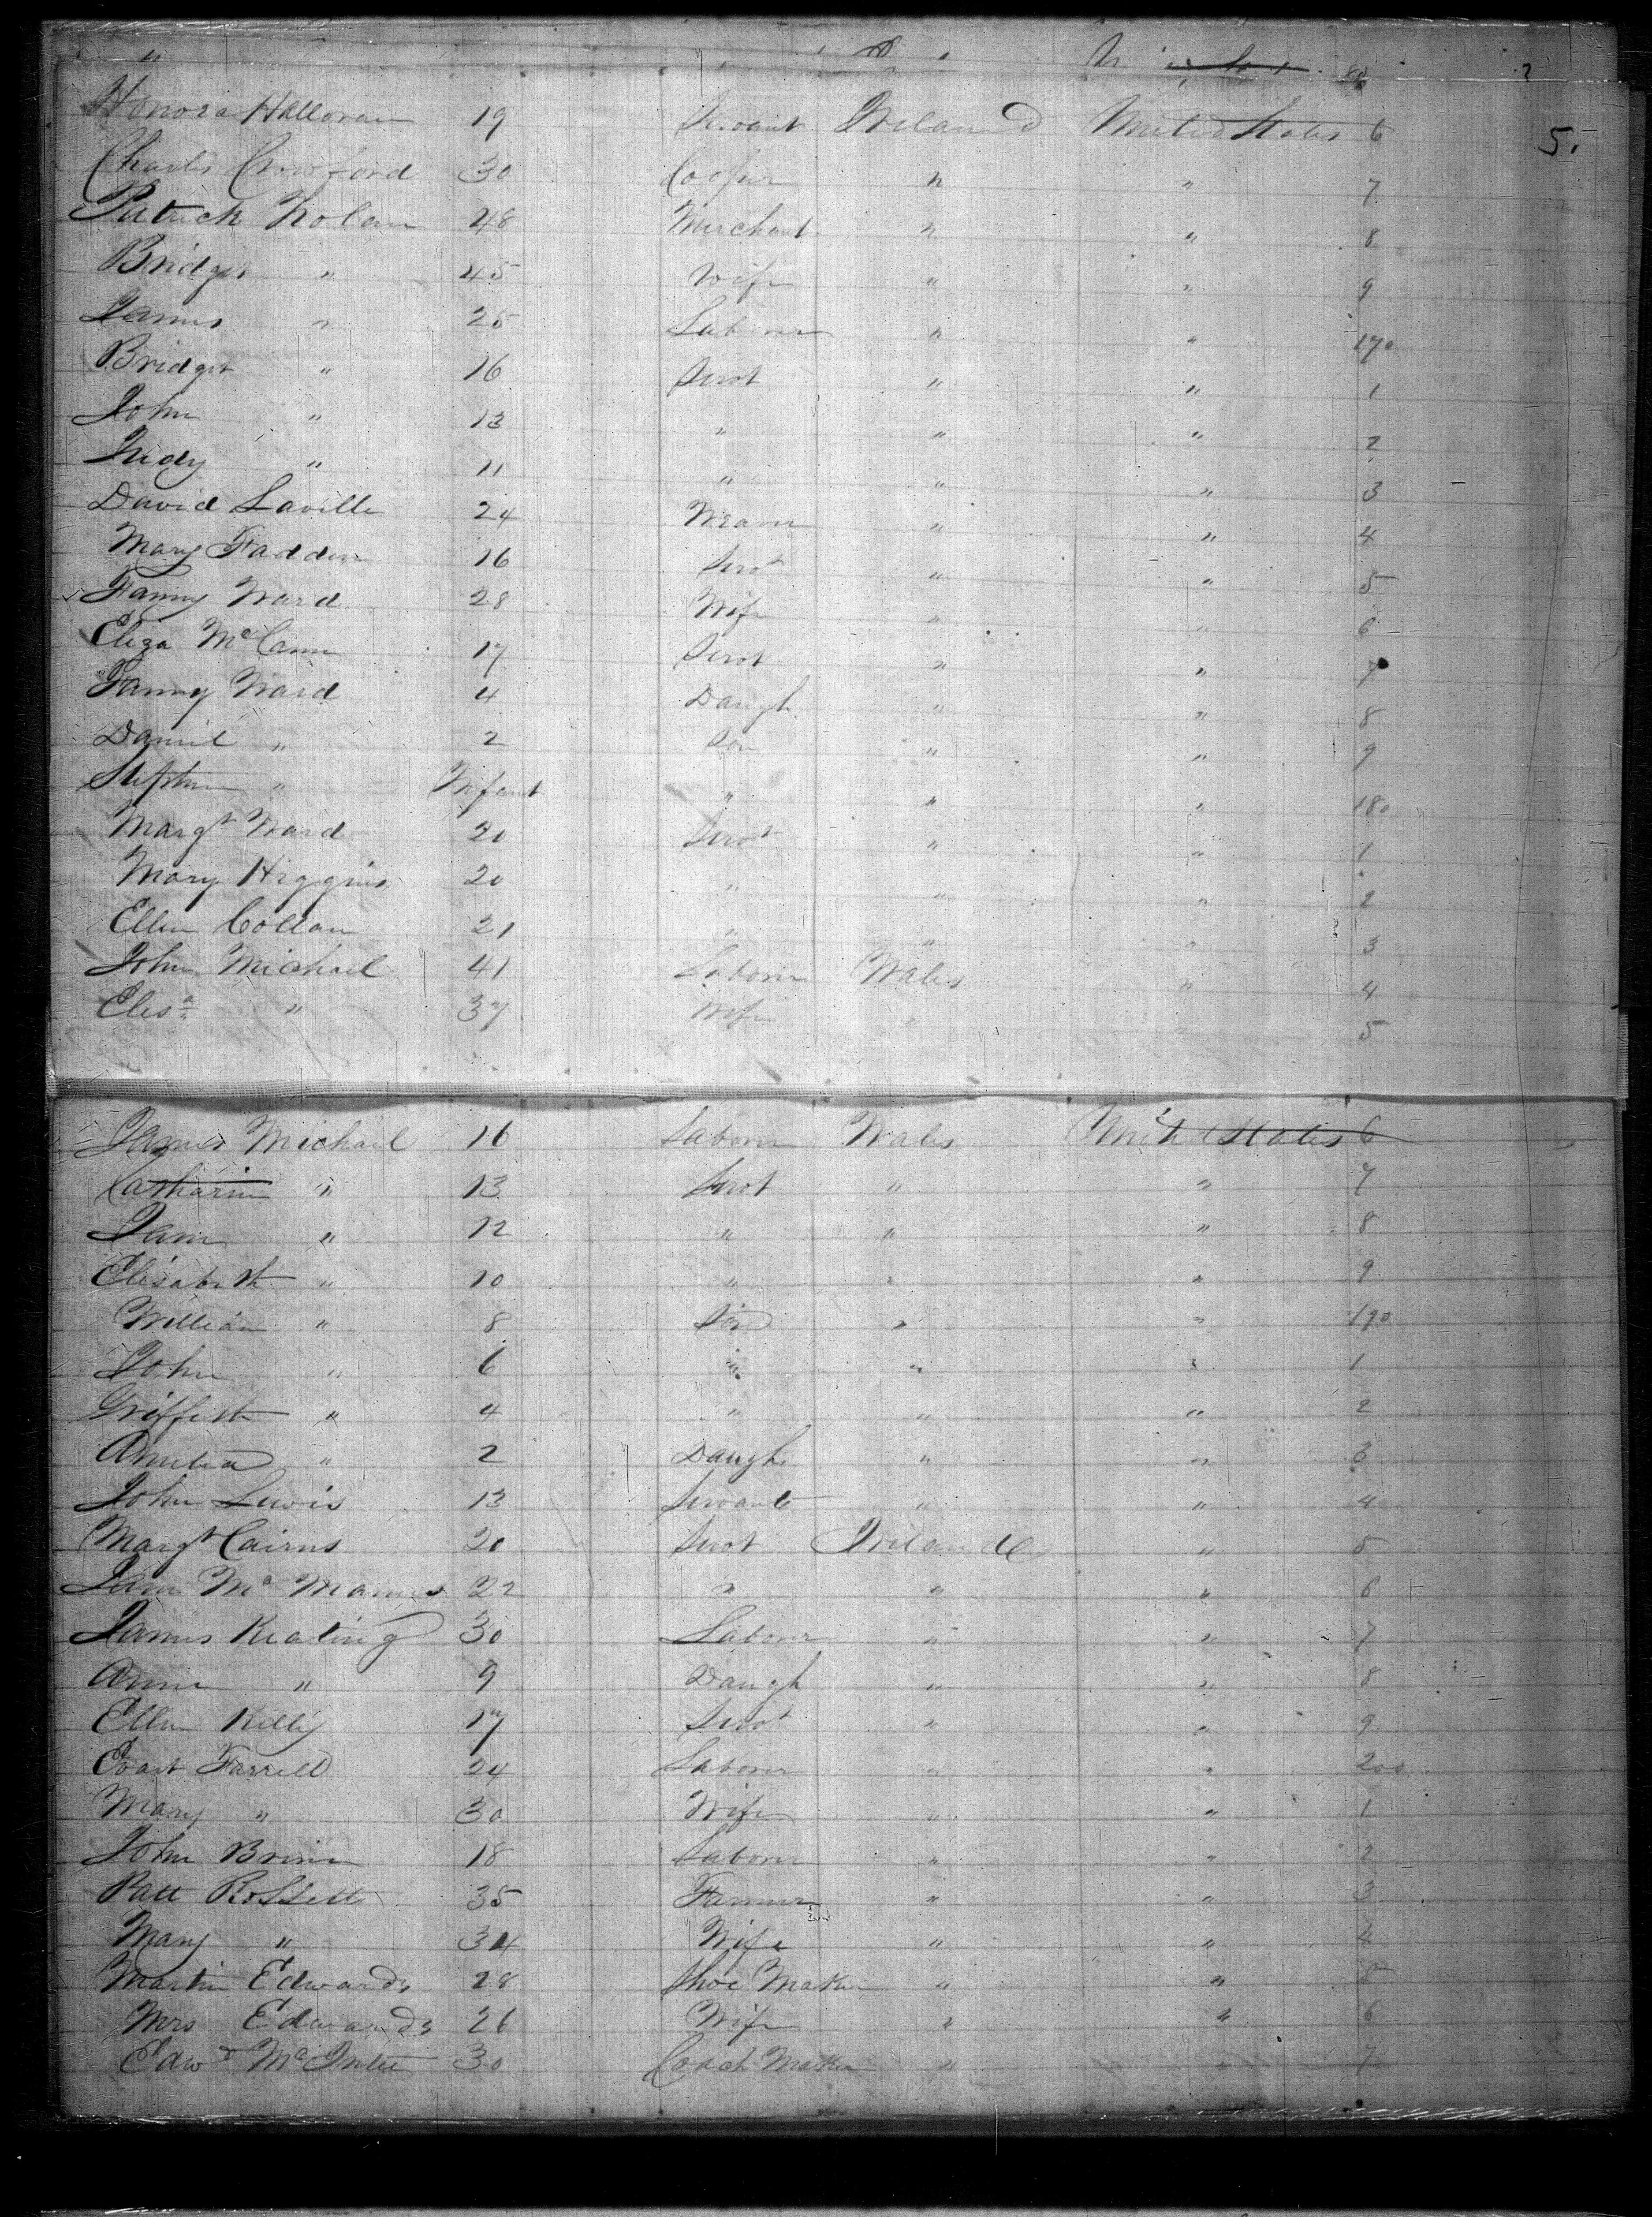 Honora Halloran 19 Servant Ireland United States 6
5.
Charles Crawford 30 Cooper " " 7
Patrick Nolan 48 Merchant " " 8
Bridget " 45 Wife " " 9
James " 25 Laborer " " 170
Bridget " 16 Servt " " 1
John " 13 " " " 2
Judy " 11 " " " 3
David Laville 24 Weaver " " 4
Mary Fadden 16 Servt " " 5
Fanny Ward 28 Wife " " 6
Eliza McCann 17 Servt " " 7
Fanny Ward 4 Daugh " " 8
Daniel " 2 Son " " 9
Stephen " Infant " " " 180
Margt Ward 20 Servt " " 1
Mary Higgins 20 " " " 2
Ellen Collan 21 " " " 3
John Michael 41 Laborer Wales " 4
Elisa " 37 Wife " " 5
James Michael 16 Laborer Wales United States 6
Catharine " 13 Servt " " 7
Jane " 12 " " " 8
Elisabeth " 10 " " " 9
William " 8 Son " " 190
John " 6 " " " 1
Griffith " 4 " " " 2
Amelia " 2 Daugh " " 3
John Lewis 13 Servant " " 4
Margt Cairns 20 Servt Ireland " 5
Jane McManus 22 " " " 6
James Keating 30 Laborer " " 7
Anne " 9 Daugh " " 8
Ellen Kelly 17 Servt " " 9
Farrell 24 Laborer " " 200
Mary " 30 Wife " " 1
John Brine 18 Laborer " " 2
Patt Rossell 35 Farmer " " 3
Mary " 34 Wife " " 4
Martin Edwards 28 Shoe Maker " " 5
Mrs Edwards 26 Wife " " 6
Edwd McIntee 30 Coach Maker " " 7